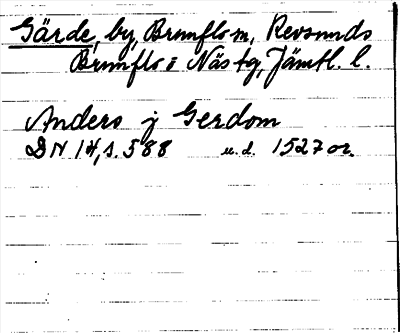 Gärde, by, Brunflo sn, Revsunds
Brunflo o Näs tg, Jämtl. l.
Anders j Gerdom
DN 14, s. 588 u.d. 1527 or.